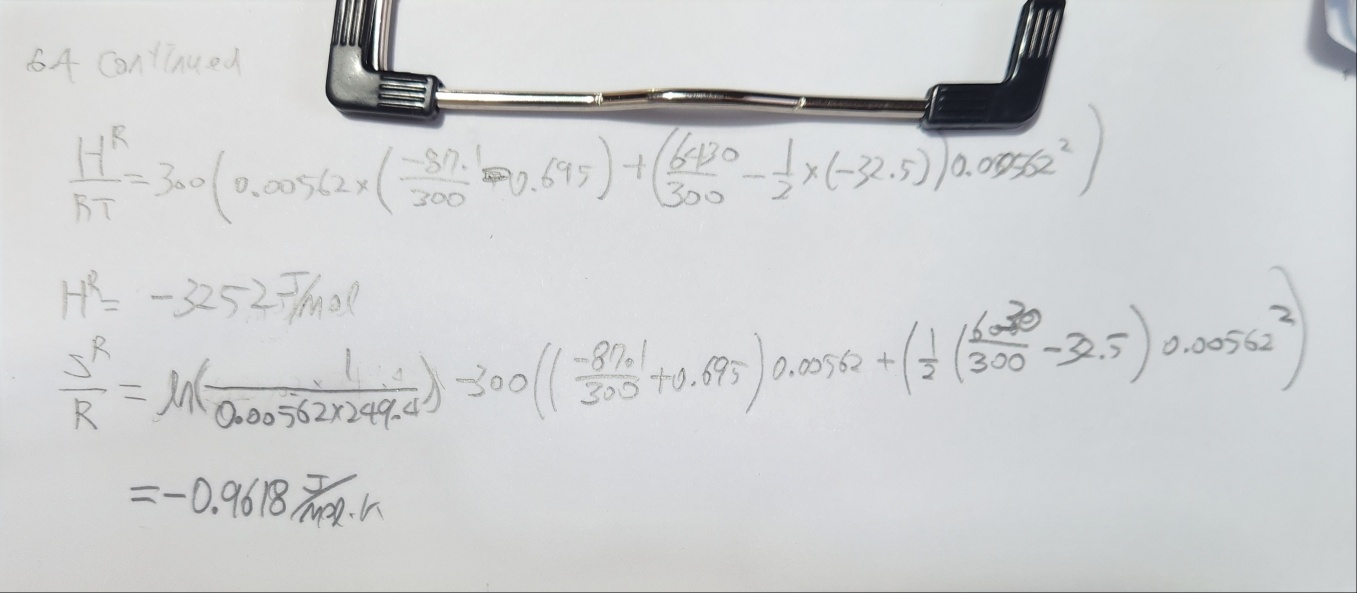 6A continued
H^R/RT = 300(0.00562×(-87.1/300 - 0.695) + (6430/300 - 1/2×(-32.5))0.00562²)
H^R = -3252 J/mol
S^R/R = ln(1/(0.00562×249.4)) - 300((-87.1/300 + 0.695)0.00562 + (1/2(6030/300 - 32.5)0.00562²)
= -0.9618 J/mol·K